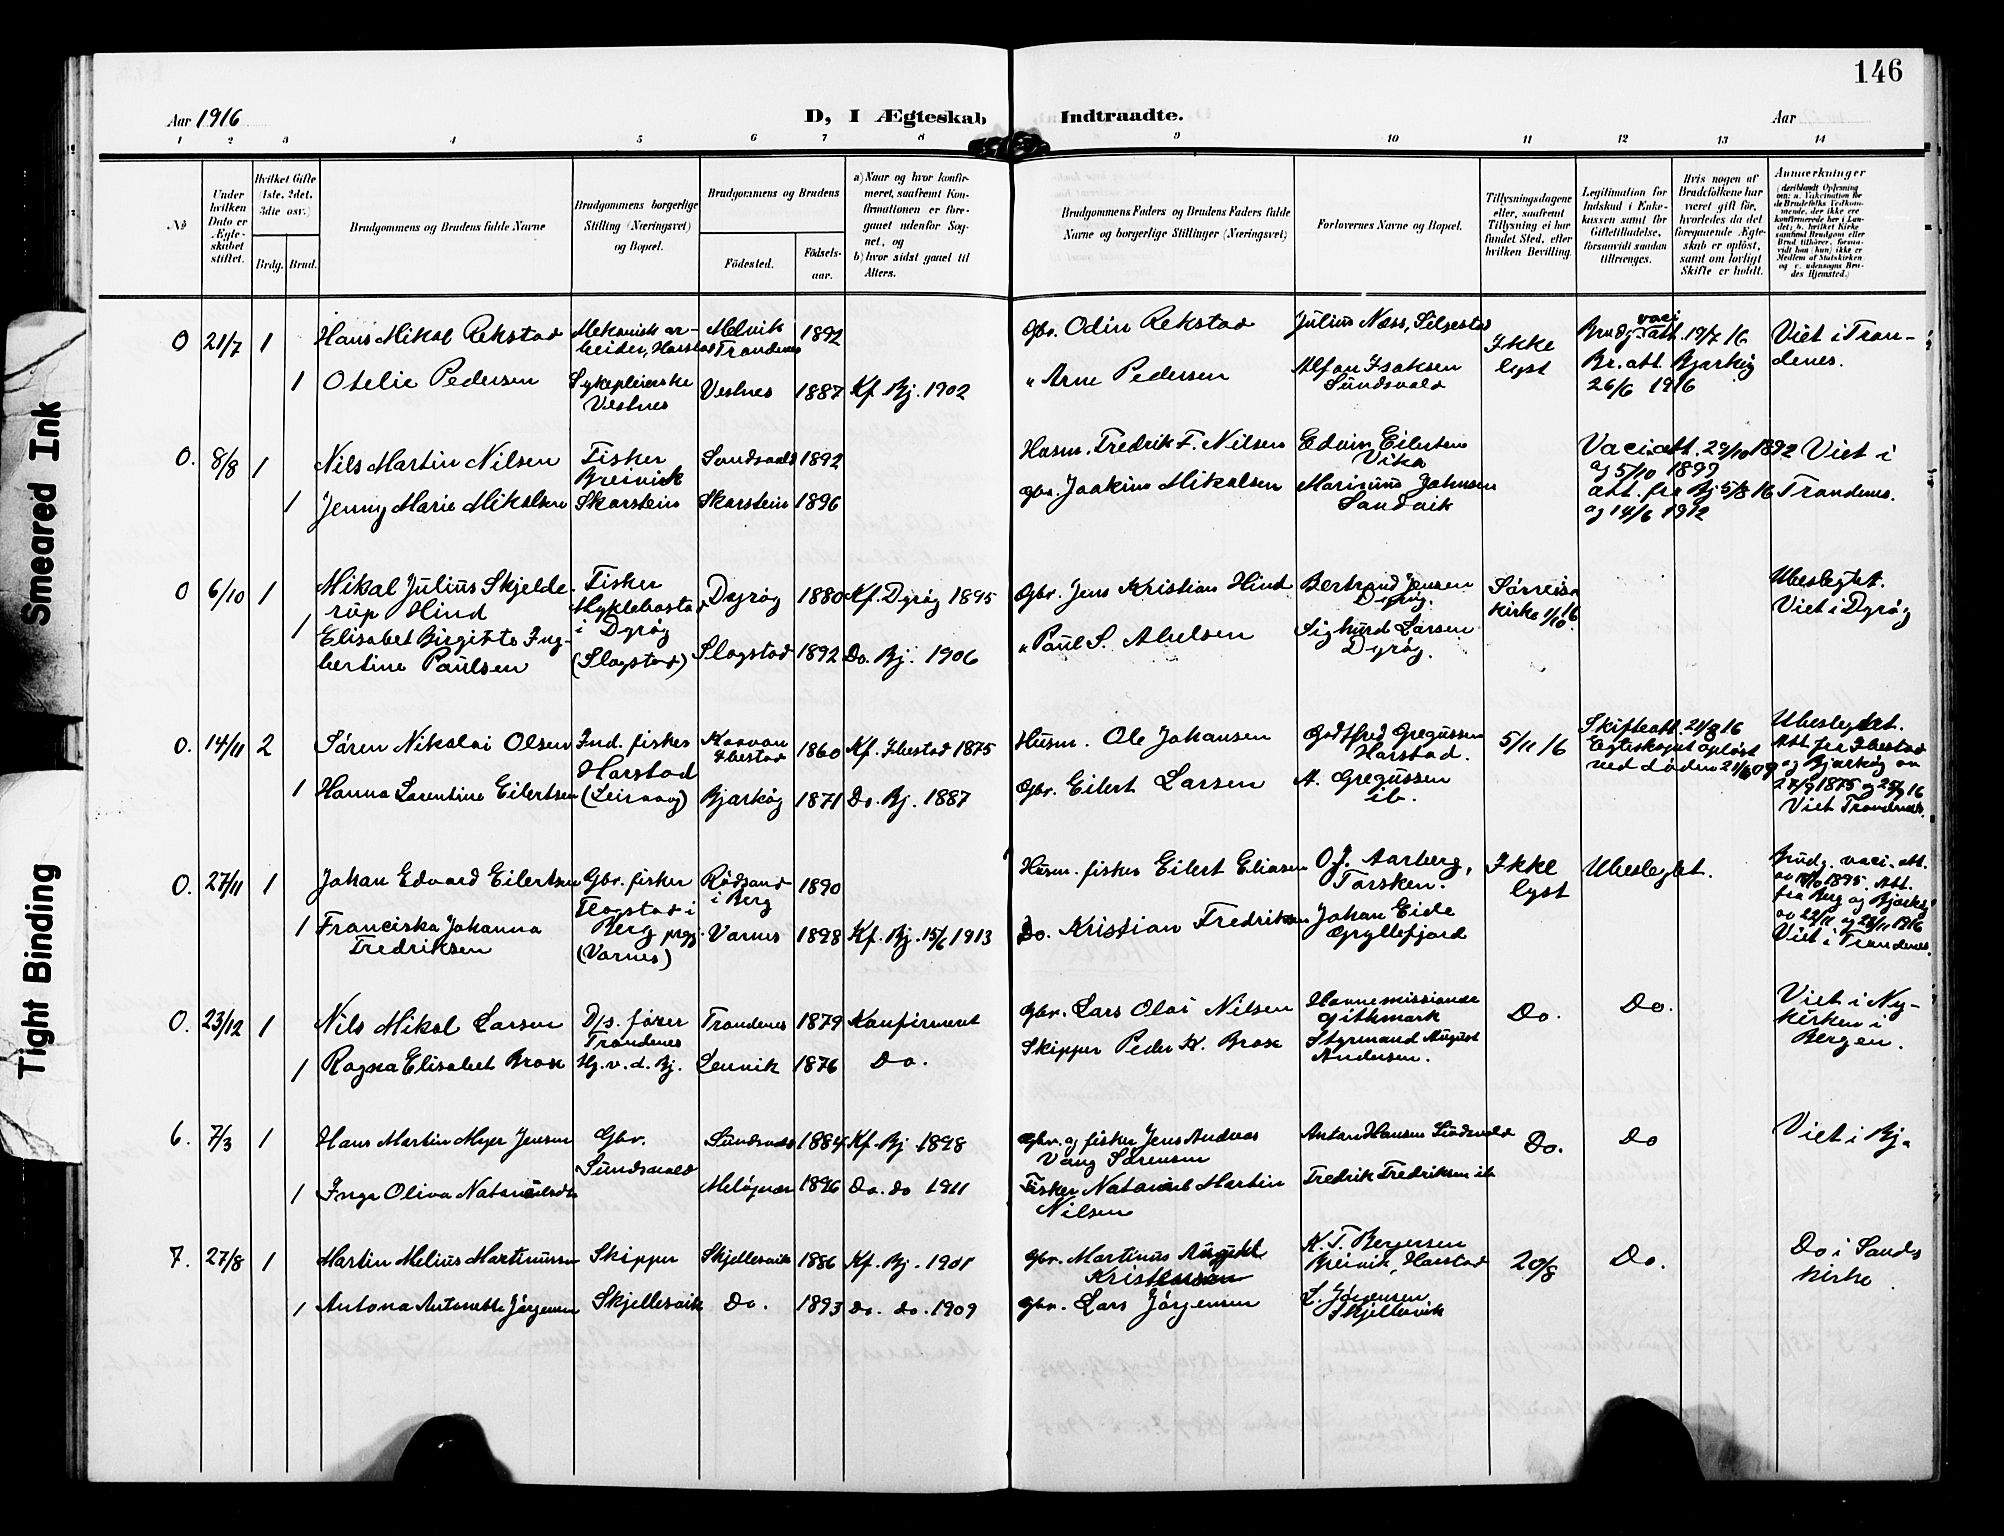 146
Aar 1916
D, I Ægteskab Indtraadte.
Aar
1 2 3 4 5 6 7 8 9 10 11 12 13 14
No
Under hvilken Dato er Ægteskabet stiftet.
Hvilket Gifte (1ste, 2det, 3die osv.)
Brdg. Brud.
Brudgommens og Brudens fulde Navne
Brudgommens borgerlige Stilling (Næringsvei) og Bopæl.
Brudgommens og Brudens
Fødested.
Fødselsaar.
a) Naar og hvor konfirmeret, saafremt Konfirmationen er foregaaet udenfor Sognet, og
b) hvor sidst gaaet til Alters.
Brudgommens Faders og Brudens Faders fulde Navne og borgerlige Stillinger (Næringsvei)
Forlovernes Navne og Bopæl.
Tillysningsdagene eller, saafremt Tillysning ei har fundet Sted, efter hvilken Bevilling.
Legitimation for Indskud i Enkekassen samt for Giftetilladelse, forsaavidt saadan tiltrænges.
Hvis nogen af Brudefolkene har været gift før, hvorledes da det foregaaende Ægteskab er opløst, samt om lovligt Skifte er holdt.
Anmærkninger
(deriblandt Oplysning om: a. Vaccination for de Brudefolks Vedkommende, der ikke ere konfirmerede her i Landet; b. hvilket Kirkesamfund Brudgom eller Brud tilhører, forsaavidt han (hun) ikke er Medlem af Statskirken og c. udensogns Brudes Hjemsted.)
0 21/7 1 Hans Mikal Rekstad
Mekanisk arbeider, Harstad
Melvik Trondenes 1892
Gbr. Odin Rekstad
Julius Næss, Silsestad
Ikke lyst
Brudg. vaci. att. 19/7 16
Br. att. Bjarkøy 26/6 1916
Viet i Trondenes.
1 Otelie Pedersen
Sykepleierske Vestnes
Vestnes 1887 Kf. Bj. 1902
" Arne Pedersen
Alfon Isaksen Sundsvold
0. 8/8 1 Nils Martin Nilsen
Fisker Breivik
Sundsvold 1892
Husm. Fredrik F. Nilsen
Edvin Eilertsen Vika
Vaci. att. 29/10 1892 og 5/10 1899
att. fra Bj. 5/8 16 og 14/6 1912
Viet i Trondenes.
1 Jenny Marie Mikalsen
Skarstein Skarstein 1896
Gbr. Joakim Mikalsen
Marinius Johnsen Sandvik
0 6/10 1 Mikal Julius Skjelderup Hind
Fisker Myklebostad i Dyrøy
Dyrøy 1880 Kf. Dyrøy 1895
Gbr. Jens Kristian Hind
Bertrand Jensen Dyrøy.
Sørreisa kirke 1/10 16.
Ubeslegtet. Viet i Dyrøy
1 Elisabet Birgitte Ingbertine Paulsen
(Slagstad) Slagstad 1892 Do. Bj. 1906
" Paul S. Abelsen
Sigurd Larsen Dyrøy.
0. 14/11 2 Søren Nikolai Olsen
Ind. fisker Harstad
Ibestad 1860 Kf. Ibestad 1875
Husm. Ole Johansen
Godtfred Gregussen Harstad.
5/11 16
Skifteatt. 21/8 16
Egteskapet opløst ved døden 21/6 09
Ubeslegtet. Att. fra Ibestad og Bjarkøy av 27/9 1875 og 25/9 16 Viet Trondenes.
1 Hanna Larentine Eilertsen
(Leirvaag) Bjarkøy 1871 Do. Bj. 1887
Gbr. Eilert Larsen
A. Gregussen ib.
0. 27/11 1 Johan Edvard Eilertsen
Gbr. fisker Flagstad i Berg prgj.
Rødsand i Berg 1890
Husm. fisker Eilert Eliasen
O. J. Aarberg, Torsken.
Ikke lyst
Ubeslegtet.
Brudg. vaci. att. av 1895. Att. fra Berg og Bjarkøy av 22/11 og 24/11 1916 Viet i Trondenes.
1 Franciska Johanna Fredriksen
(Varnes) Varnes 1898 Kf. Bj. 15/6 1913
Do. Kristian Fredriksen
Johan Eide Gryllefjord
0. 23/12 1 Nils Mikal Larsen
D/s. fører Trondenes
Trondenes 1879 Konfirmert
Gbr. Lars Olai Nilsen
Havnemissionær Githmark
Do. Do.
Viet i Nykirken i Bergen.
1 Ragna Elisabet Brox
Hj. v. d. Bj. Lenvik 1876 Do.
Skipper Peder K. Brox
Styrmand August Andersen.
6. 7/3 1 Hans Martin Myer Jensen
Gbr. Sundsvold
Sundsvold 1884 Kf. Bj. 1898
Gbr. og fisker Jens Andreas Vang Sørensen
Anton Hansen Sundsvold
Do. Do
Viet i Bj.
1 Inga Oliva Natanielsdt.
Meløyvær 1896 Do. Do 1911
Fisker Nataniel Martin Nilsen
Fredrik Fredriksen ib.
7. 27/8 1 Martin Melius Martinussen
Skipper Skjellesvik 1886 Kf. Bj. 1901
Gbr. Martinus August Kristensen
K. T. Bergersen Breivik, Harstad
20/8 Do.
Do i Sands kirke
1 Antona Antonette Jørgensen
Skjellesvik Do. 1893 Do. Do. 1909
Gbr. Lars Jørgensen
L. Jørgensen Skjellesvik
Smeared Ink
Tight Binding